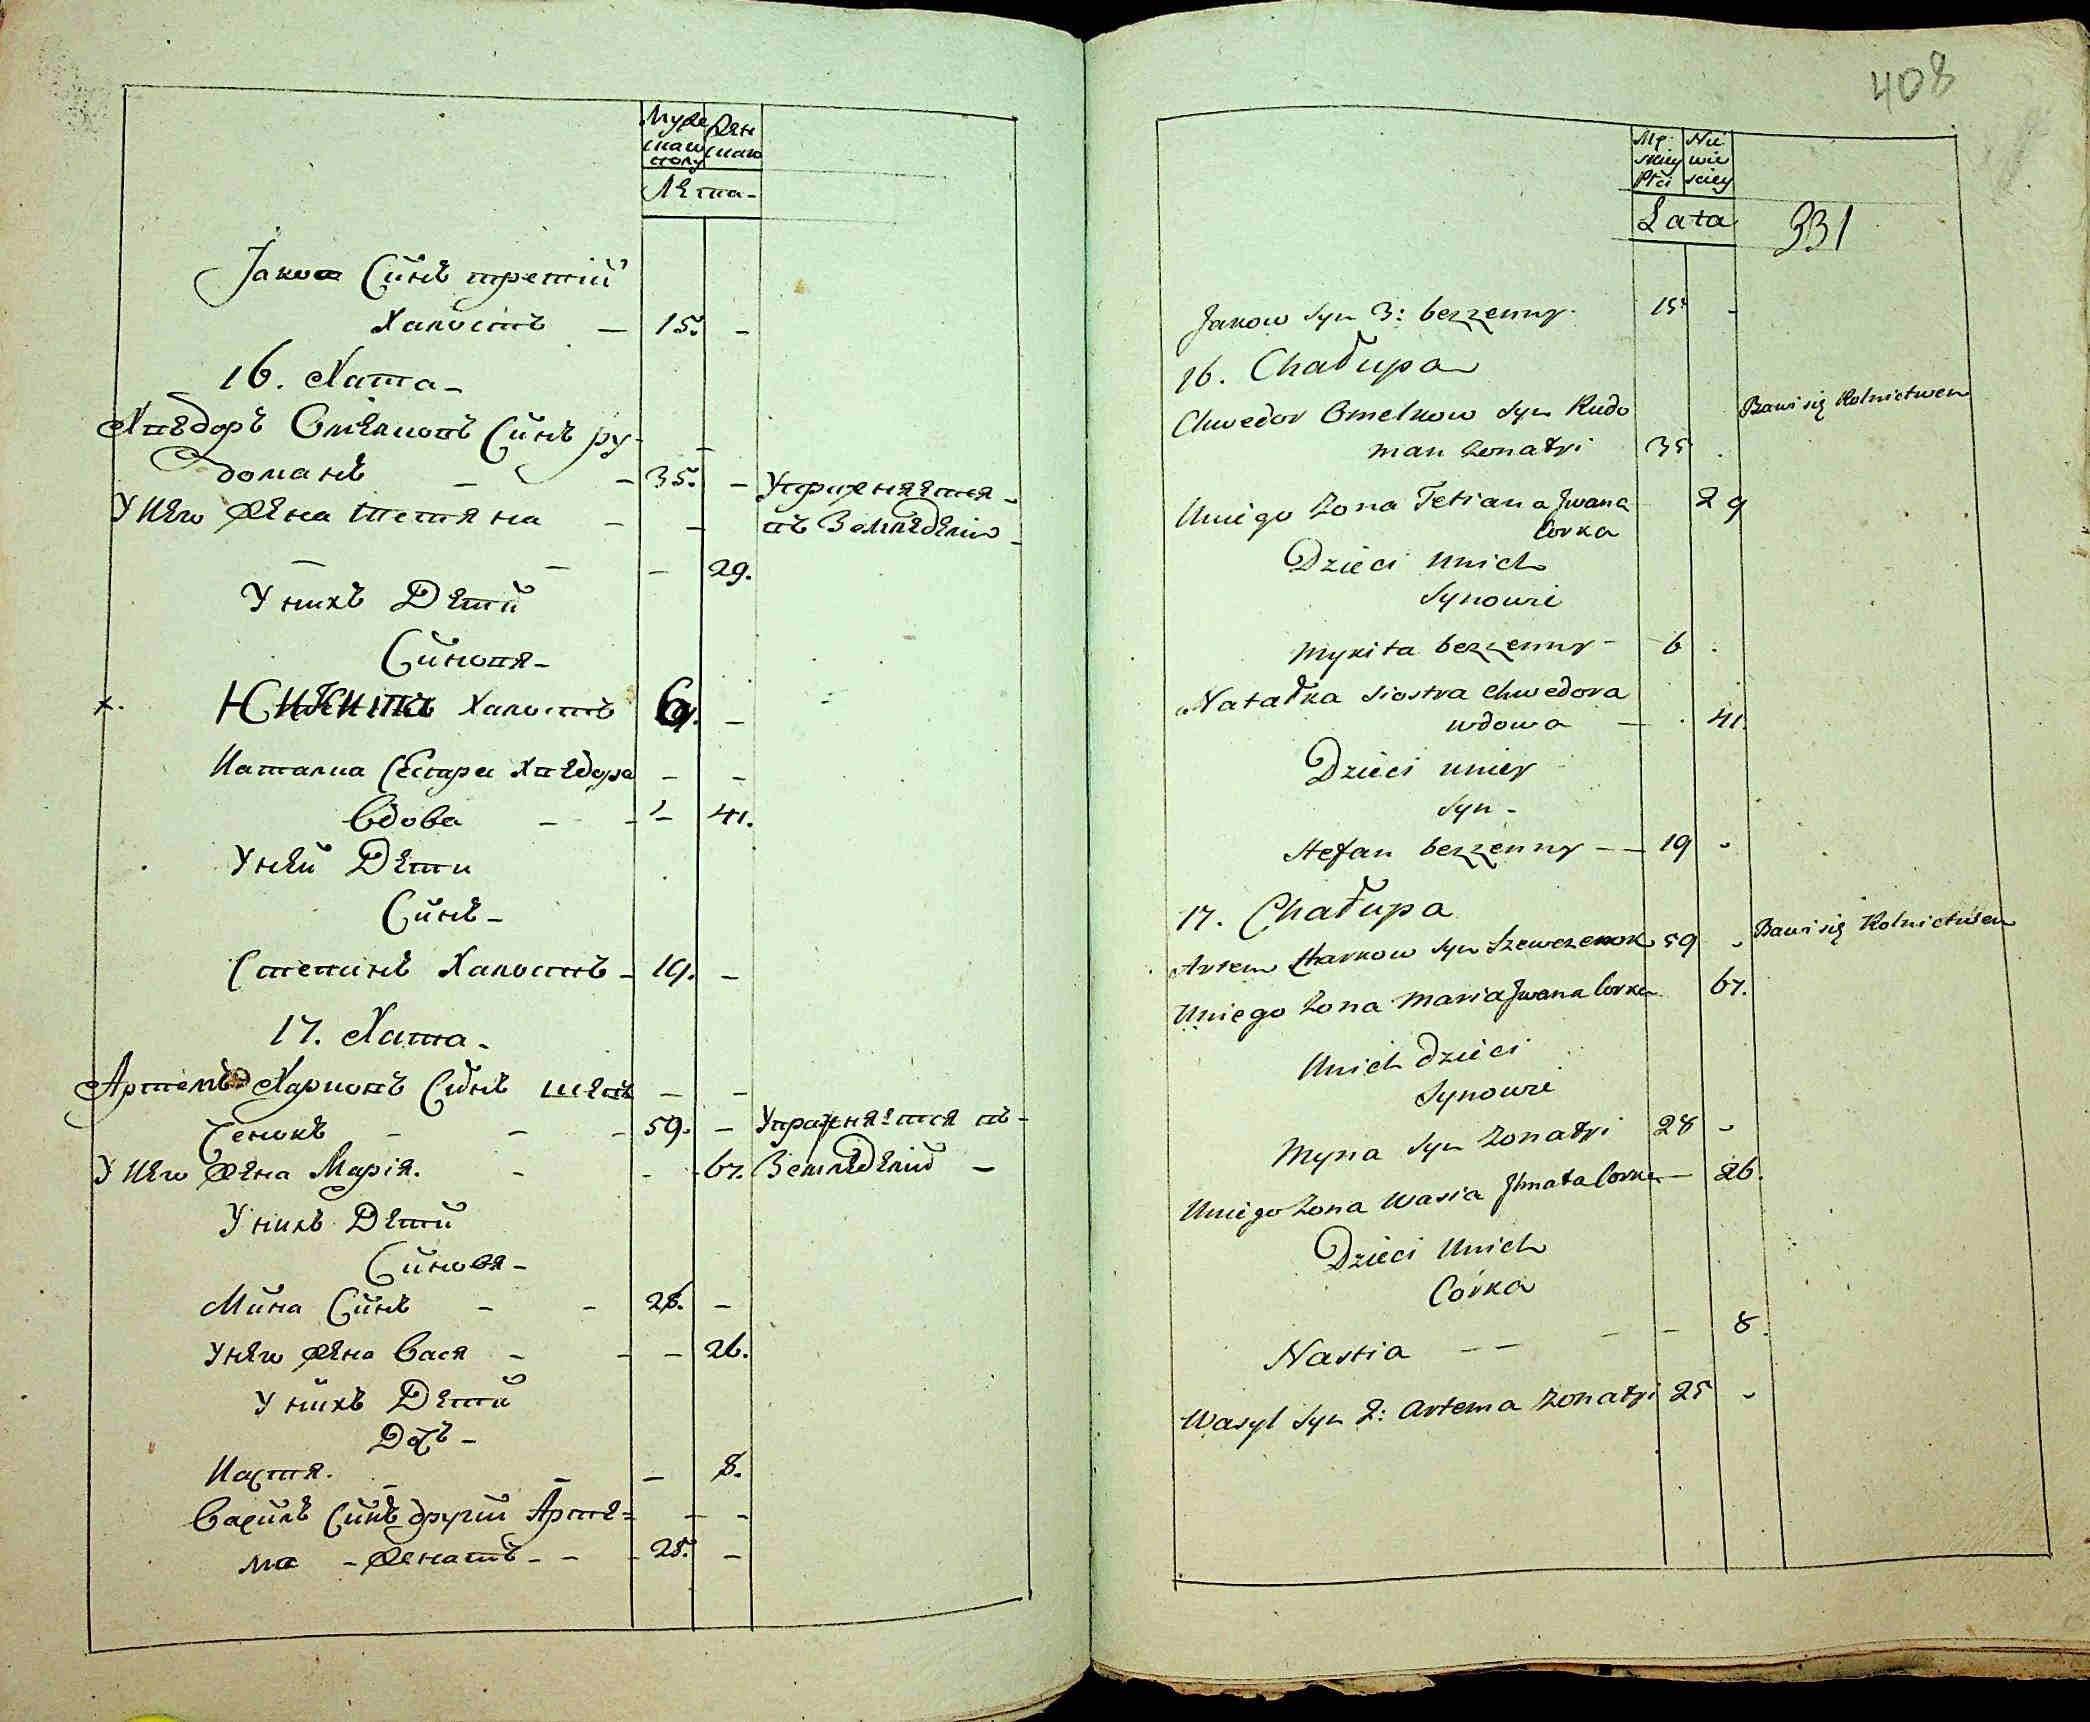 Муже
ска
полу
Жен
скаго
Лѣта-
Јаковъ Синъ третій
Халостъ — 15. -
16. Хата-
Хведоръ Омелковъ Синъ ру-
доманъ — 35. - Упражняется
У него жена Тетяна - въ Земледелію
29.
У нихъ Дѣти
Синовя-
х. Никита Халостъ 6. -
Наталка Сестра Хведора - -
Вдова - - 41.
У ней Дѣти
Синъ-
Степанъ Халостъ - 19. -
17. Хата-
Артемъ Харковъ Синъ шев - -
ченокъ - - - 59. - Упражняется въ
У него жена Марія. - - 67. Земледелій -
У нихъ Дѣти
Синовя-
Мина Синъ - - 28. -
У него жена Вася - - - 26.
У нихъ Дѣти
Дочъ-
Настя. - - - 8.
Василь Синъ другій Арте= - -
ма - женатъ - - - 25. -
408
Mę:
skiey
Płci
Nie
wie
sciey
Lata
331
Jakow Syn 3: bezzenny. 15. -
16. Chałupa
Chwedor Omelkow Syn Rudo Bawi się Rolnictwem
man Zonaty 35 .
Uniego Zona Tetiana Jwana 29
Corka
Dzieci Unich
Synowie
Mykita bezzenny - 6 .
Natałka Siostra Chwedora
wdowa - . 41.
Dzieci Uniey
Syn -
Stefan bezzenny - - 19 -
17. Chałupa
Artem Charkow Syn Szewczenok 59 - Bawi się Rolnictwem
Uniego Zona Maria Jwana Corka 67.
Unich Dzieci
Synowie
Myna Syn Zonaty 28 -
Uniego Zona Wasia Jhnata Corka - 26.
Dzieci Unich
Córka
Nastia - - - - 8.
Wasyl Syn 2: Artema Zonaty 25 -